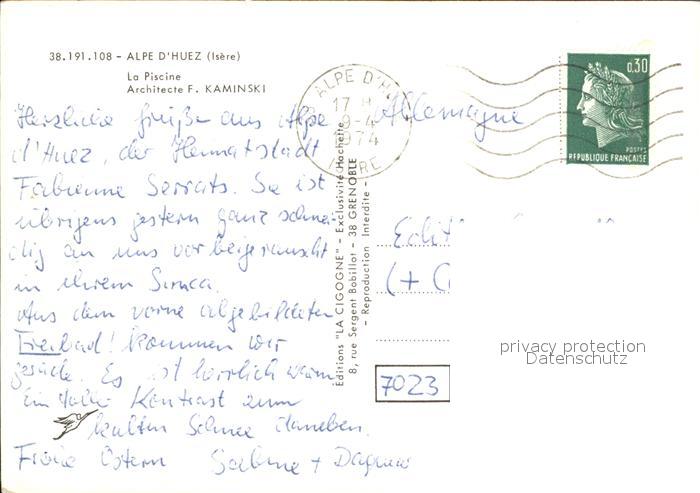 38.191.108 - ALPE D'HUEZ (Isère)
La Piscine
Architecte F. KAMINSKI
Herzliche Grüße aus Alpe
d'Huez, der Heimatstadt
Fabienne Serrats. Sie ist
übrigens gestern ganz schnei-
dig an uns vorbeigerauscht
in ihrem Simca.
Aus dem vorne abgebildeten
Freibad! kommen wir
gerade. Es ist herrlich warm
Ein toller Kontrast zum
kalten Schnee daneben.
Frohe Ostern Sabine + Dagmar
Editions "LA CIGOGNE" - Exclusivité Hachette
8, rue Sergent Bobillot - 38 GRENOBLE
- Reproduction Interdite -
ALPE D'H
17 H
9-4
1974
ISERE
0,30
POSTES
REPUBLIQUE FRANÇAISE
Allemagne
Edit
(+
7023
privacy protection
Datenschutz